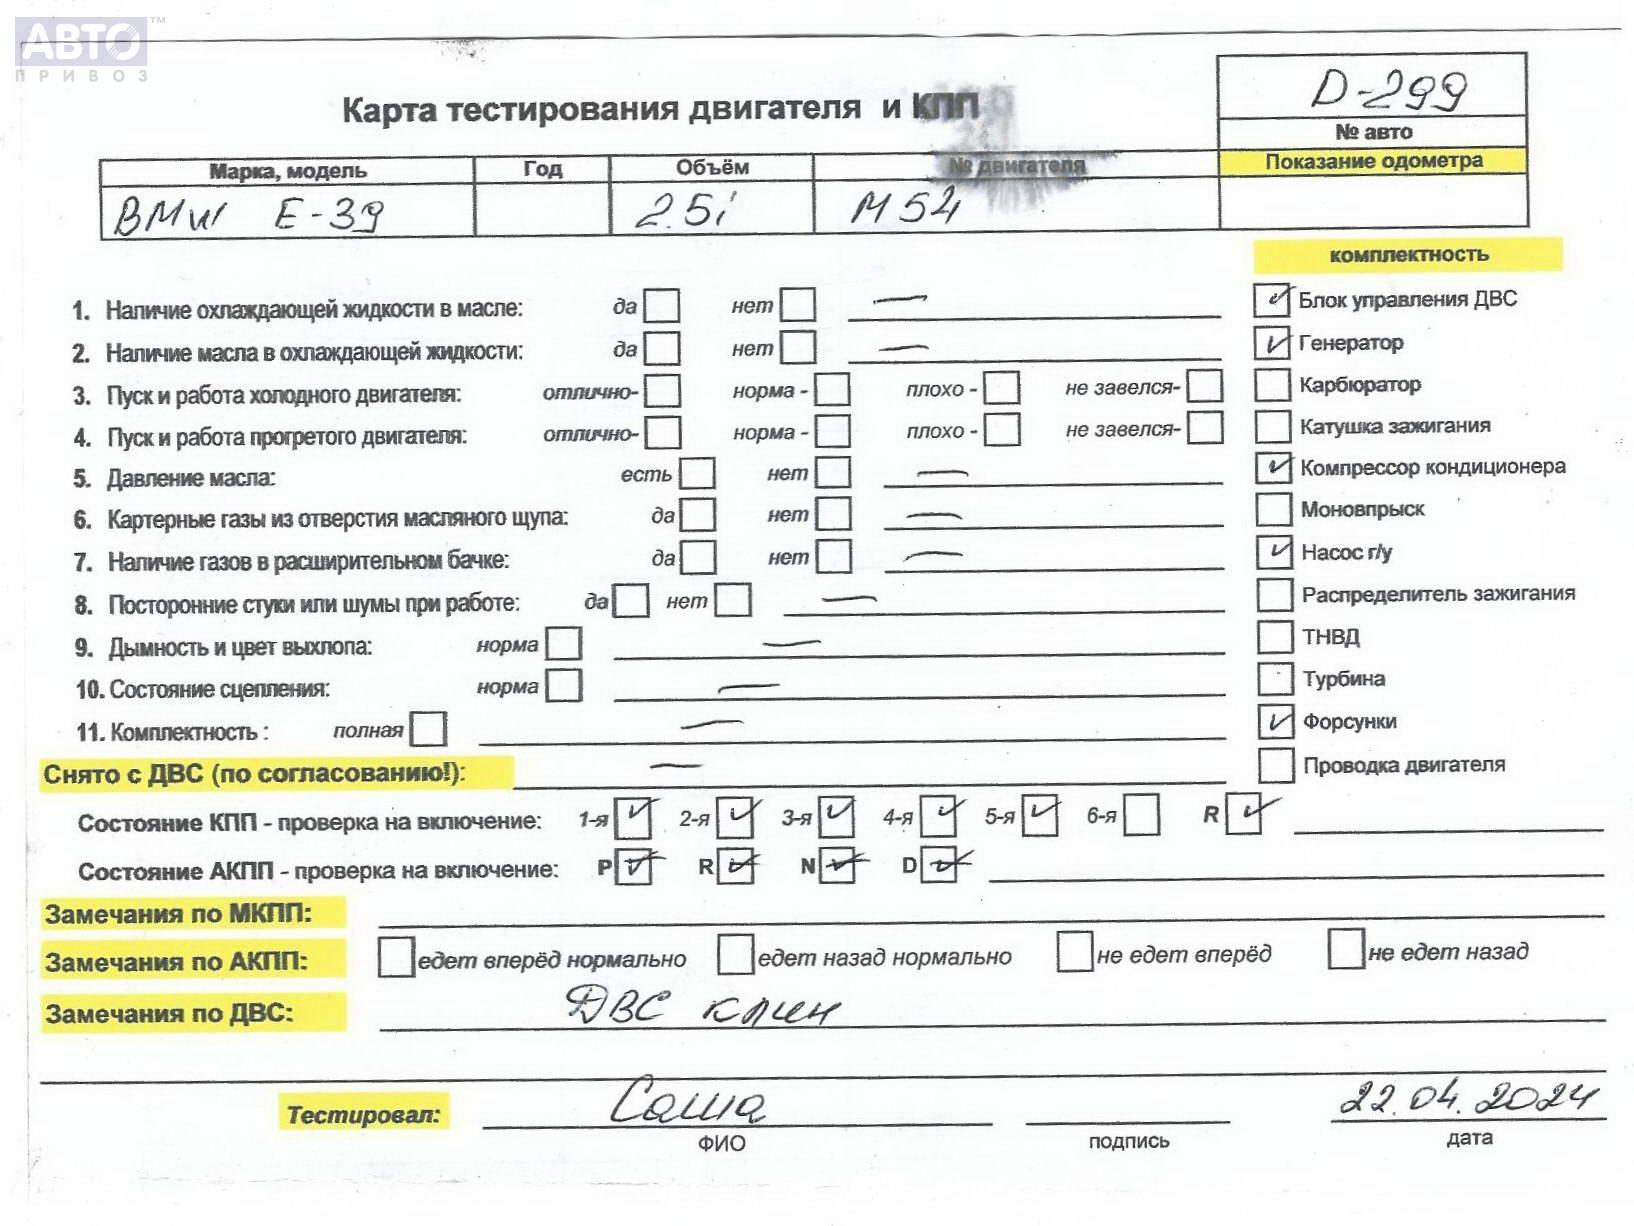 АВТО™
ПРИВОЗ
Карта тестирования двигателя и КПП
D-299
№ авто
Марка, модель Год Объём № двигателя Показание одометра
BMW E-39 2.5i M54
комплектность
1. Наличие охлаждающей жидкости в масле: да нет — Блок управления ДВС
2. Наличие масла в охлаждающей жидкости: да нет — Генератор
3. Пуск и работа холодного двигателя: отлично- норма - плохо - не завелся- Карбюратор
4. Пуск и работа прогретого двигателя: отлично- норма - плохо - не завелся- Катушка зажигания
5. Давление масла: есть нет — Компрессор кондиционера
6. Картерные газы из отверстия масляного щупа: да нет — Моновпрыск
7. Наличие газов в расширительном бачке: да нет — Насос г/у
8. Посторонние стуки или шумы при работе: да нет — Распределитель зажигания
9. Дымность и цвет выхлопа: норма — ТНВД
10. Состояние сцепления: норма — Турбина
11. Комплектность : полная — Форсунки
Снято с ДВС (по согласованию!): — Проводка двигателя
Состояние КПП - проверка на включение: 1-я 2-я 3-я 4-я 5-я 6-я R
Состояние АКПП - проверка на включение: P R N D
Замечания по МКПП:
Замечания по АКПП: едет вперёд нормально едет назад нормально не едет вперёд не едет назад
Замечания по ДВС: ДВС клин
Тестировал: Саша 22.04.2024
ФИО подпись дата